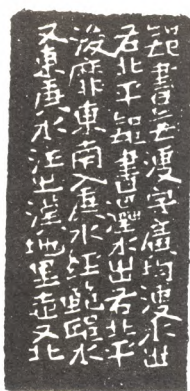 鍇書無浭字廣均浭水出
右北平鍇書灅水出右北平
浚靡東南入庚水經鮑邱水
又東庚水注之漢地里志又北